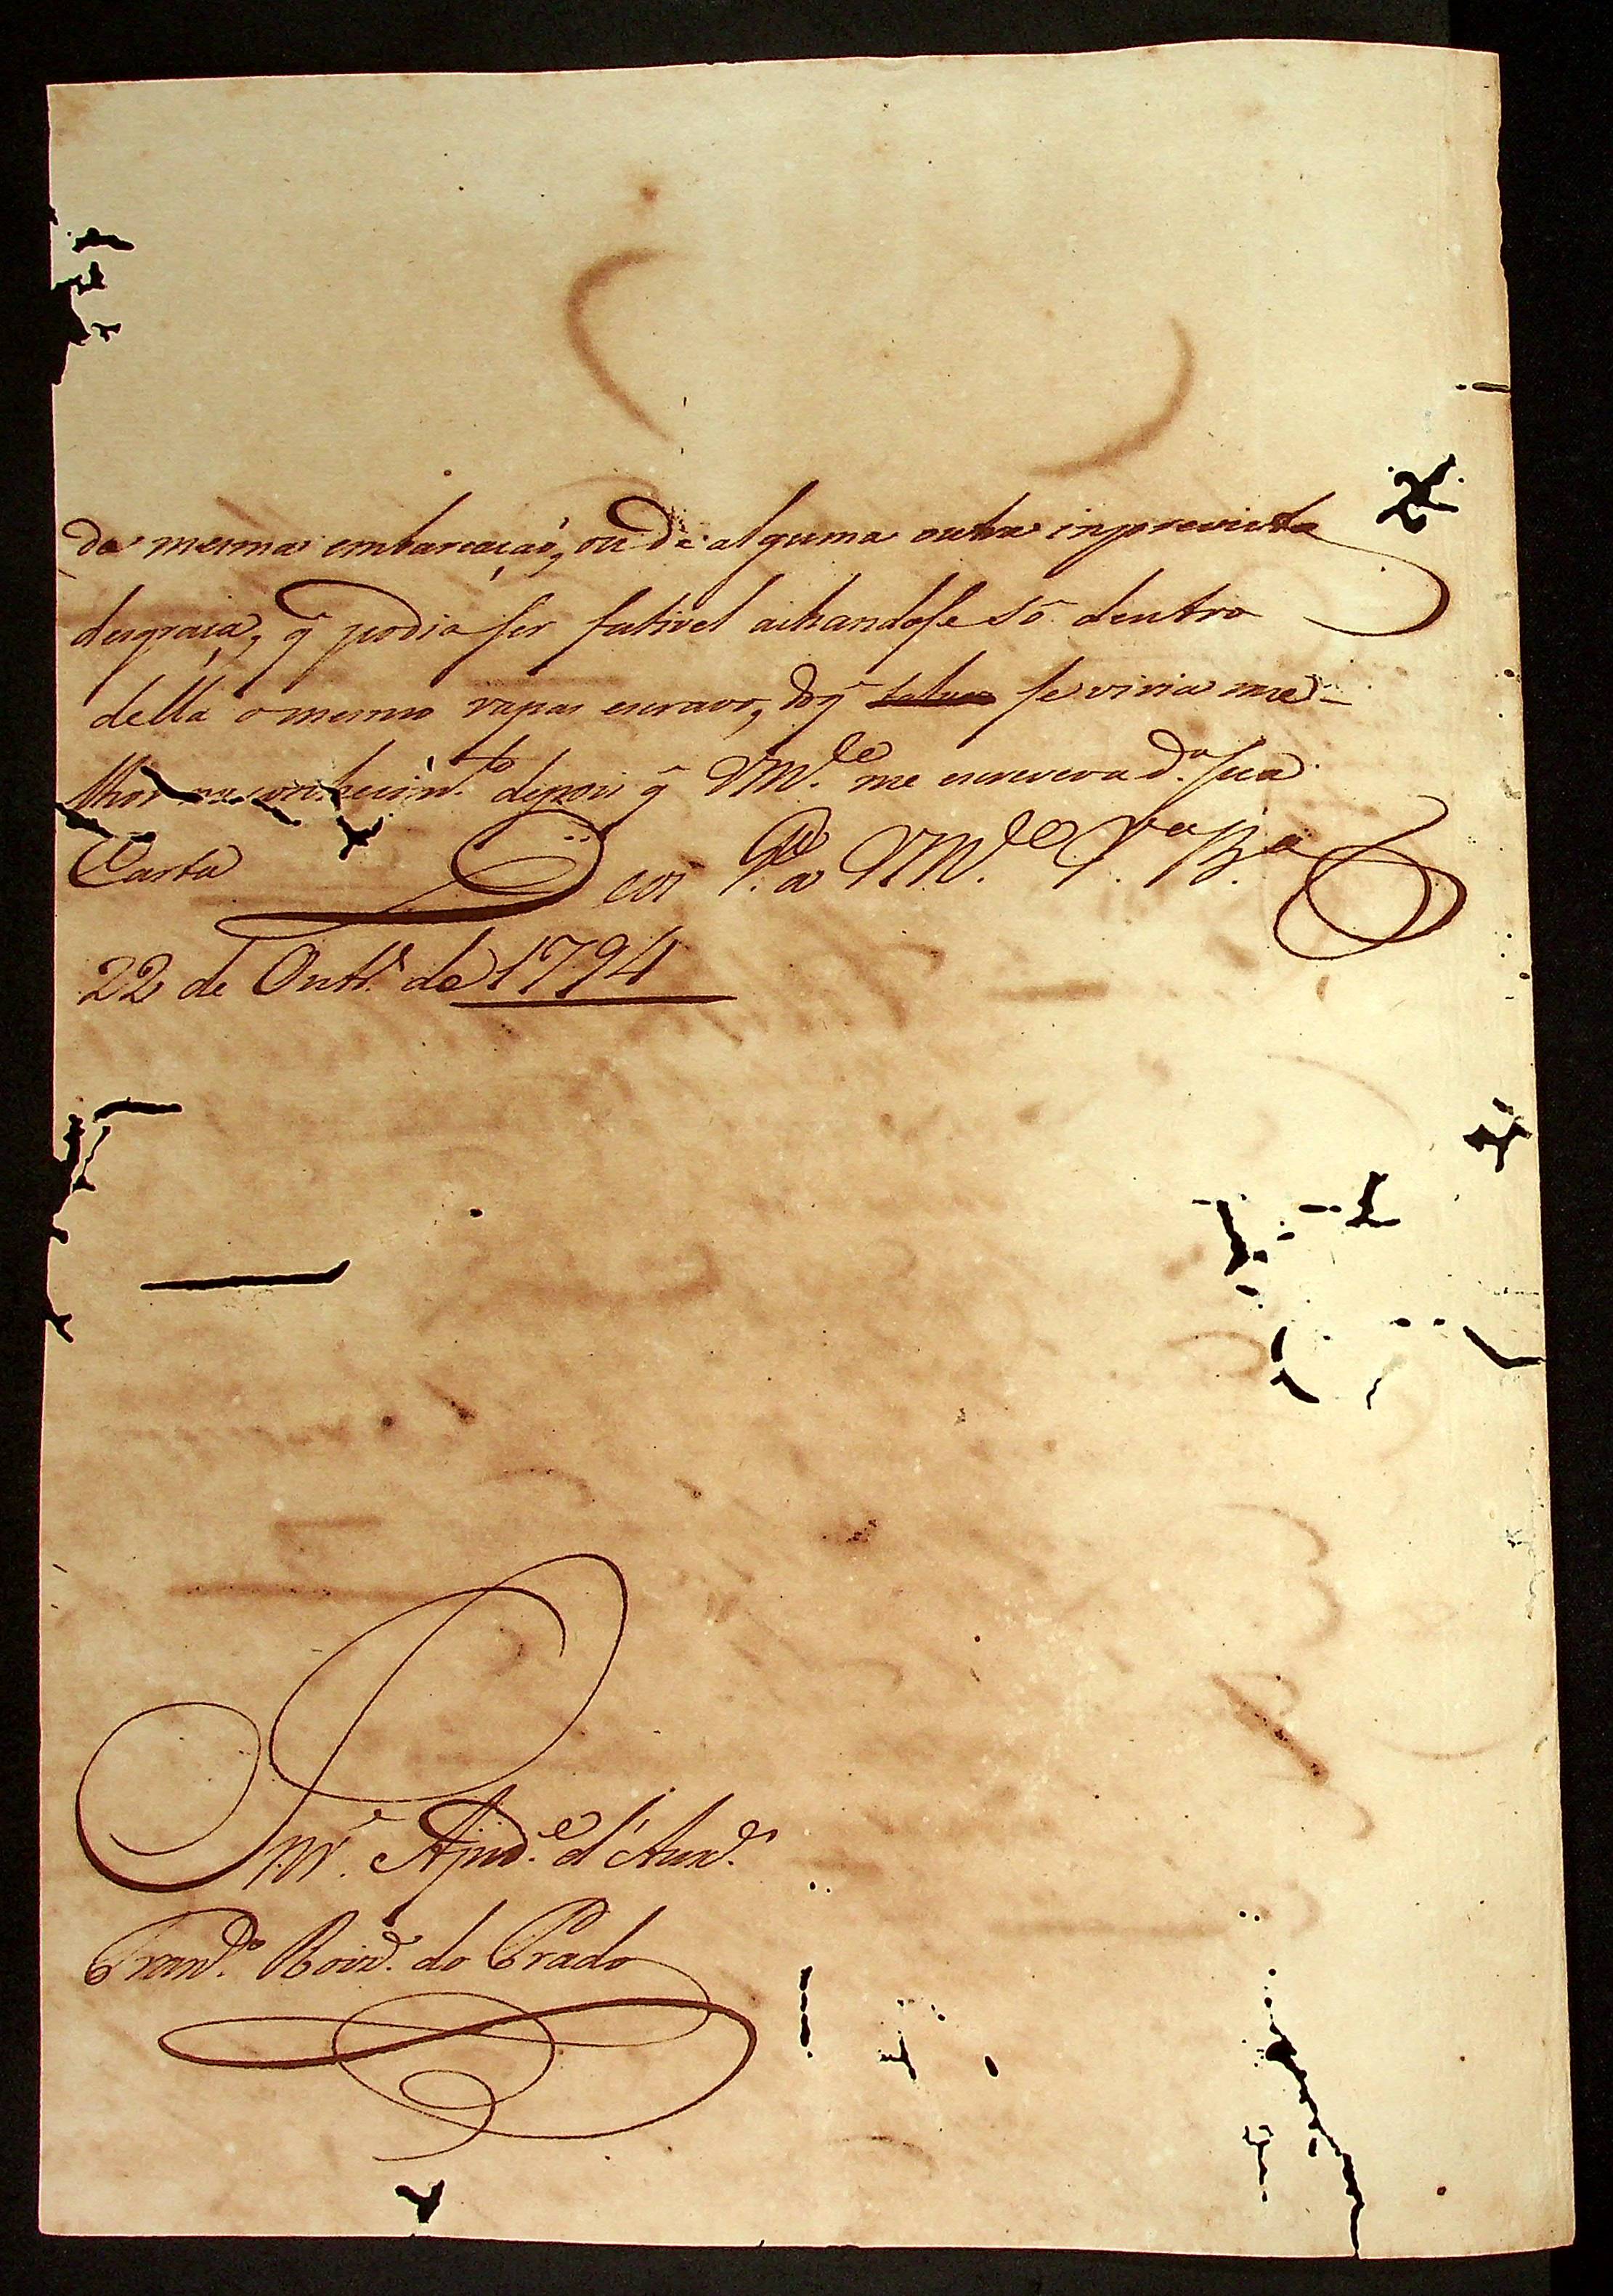 da mesma embarcação, ou de alguma outra inprevista
desgraça, q̃ podia ser fativel achandose só dentro
della o mesmo rapas escravo, doq̃ se viria me-
lhor no conhecim.to depois q̃ VM.ce me escrevera d.a sua
Carta Deos G.de a VM.ce V.a B.a
22 de Outr.o de 1794
Snr. Ajud.e d'Aux.es
Fran.co Roiz. do Prado